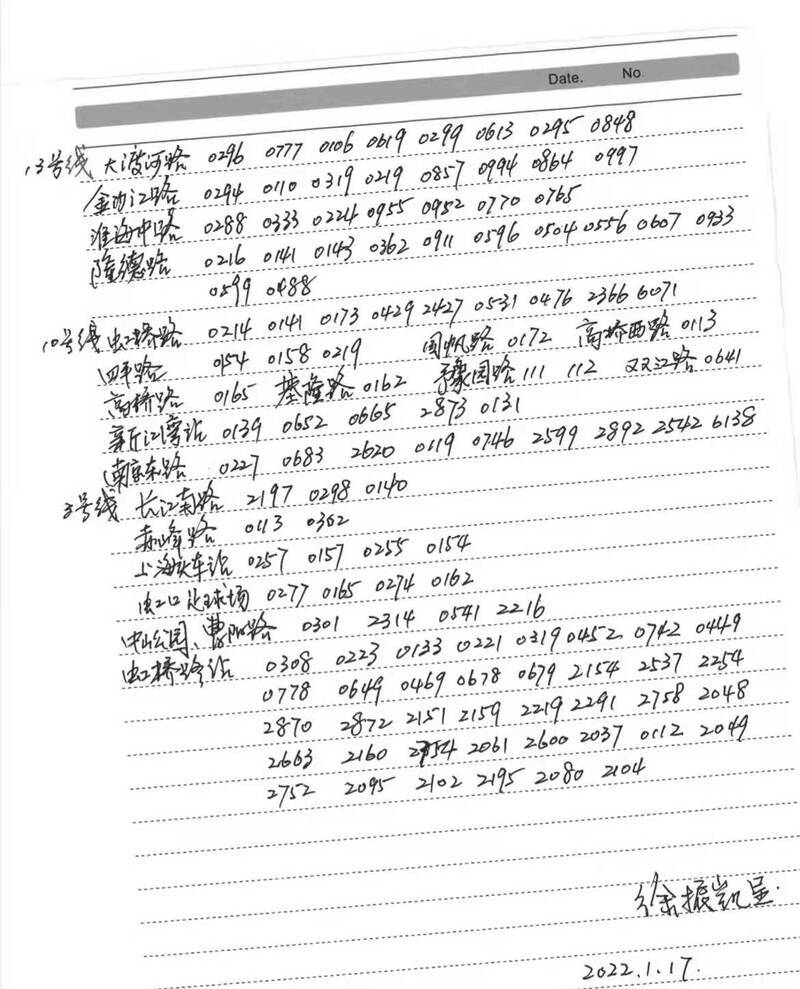 Date. No
13号线 大渡河路 0296 0777 0106 0619 0299 0613 0295 0848
金沙江路 0294 0110 0319 0219 0857 0994 0864 0997
淮海中路 0288 0333 0224 0955 0952 0770 0765
隆德路 0216 0141 0143 0362 0911 0596 0504 0556 0607 0933
0599 0488
10号线 虹桥路 0214 0141 0173 0429 2427 0531 0476 2366 6071
四平路 0154 0158 0219 国帆路 0172 高桥西路 0113
高桥路 0165 基隆路 0162 豫园路 111 112 双江路 0641
新江湾站 0139 0652 0665 2873 0131
南京东路 0227 0683 2620 0119 0746 2599 2892 2542 6138
3号线 长江南路 2197 0298 0140
赤峰路 0113 0362
上海火车站 0257 0157 0255 0154
虹口足球场 0277 0165 0274 0162
中山公园、曹阳路 0301 2314 0541 2216
虹桥路站 0308 0223 0133 0221 0319 0452 0742 0449
0778 0649 0469 0678 0679 2154 2537 2254
2870 2872 2151 2159 2219 2291 2758 2048
2663 2160 2754 2061 2600 2037 0112 2049
2752 2095 2102 2195 2080 2104
徐振凯呈.
2022.1.17.